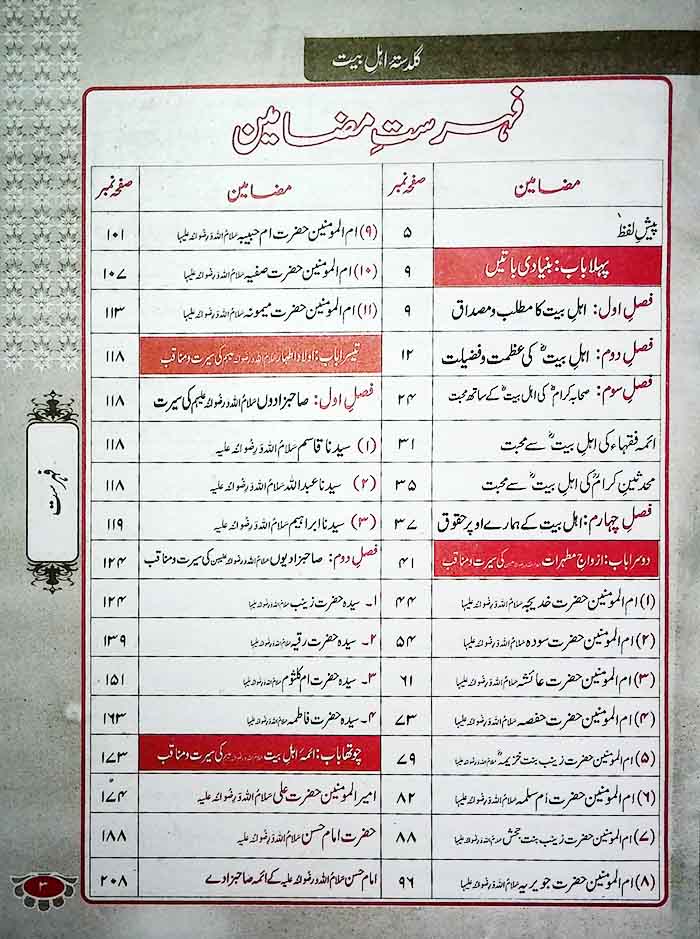 گلدستۂ اہلِ بیت
فہرستِ مضامین
مضامین صفحہ نمبر
پیشِ لفظ ۵
پہلا باب: بنیادی باتیں ۹
فصلِ اول: اہلِ بیت کا مطلب و مصداق ۹
فصلِ دوم: اہلِ بیتؓ کی عظمت و فضیلت ۱۲
فصلِ سوم: صحابہ کرامؓ کی اہلِ بیتؓ کے ساتھ محبت ۲۴
ائمہ فقہاء کی اہلِ بیتؓ سے محبت ۳۱
محدثینِ کرامؒ کی اہلِ بیتؓ سے محبت ۳۵
فصلِ چہارم: اہلِ بیت کے ہمارے اوپر حقوق ۳۷
دوسرا باب: ازواجِ مطہرات کی سیرت و مناقب ۴۱
(۱) ام المومنین حضرت خدیجہ سلامُ اللہ وَرِضْوَانُہٗ علیہا ۴۴
(۲) ام المومنین حضرت سودہ سلامُ اللہ وَرِضْوَانُہٗ علیہا ۵۴
(۳) ام المومنین حضرت عائشہ سلامُ اللہ وَرِضْوَانُہٗ علیہا ۶۱
(۴) ام المومنین حضرت حفصہ سلامُ اللہ وَرِضْوَانُہٗ علیہا ۷۳
(۵) ام المومنین حضرت زینب بنت خزیمہؓ سلامُ اللہ وَرِضْوَانُہٗ علیہا ۷۹
(۶) ام المومنین حضرت اُم سلمہ سلامُ اللہ وَرِضْوَانُہٗ علیہا ۸۲
(۷) ام المومنین حضرت زینب بنت جحش سلامُ اللہ وَرِضْوَانُہٗ علیہا ۸۸
(۸) ام المومنین حضرت جویریہ سلامُ اللہ وَرِضْوَانُہٗ علیہا ۹۶
مضامین صفحہ نمبر
(۹) ام المومنین حضرت ام حبیبہ سلامُ اللہ وَرِضْوَانُہٗ علیہا ۱۰۱
(۱۰) ام المومنین حضرت صفیہ سلامُ اللہ وَرِضْوَانُہٗ علیہا ۱۰۷
(۱۱) ام المومنین حضرت میمونہ سلامُ اللہ وَرِضْوَانُہٗ علیہا ۱۱۳
تیسرا باب: اولادِ اطہار سلامُ اللہ وَرِضْوَانُہٗ علیہم کی سیرت و مناقب ۱۱۸
فصلِ اول: صاحبزادوں سلامُ اللہ وَرِضْوَانُہٗ علیہم کی سیرت ۱۱۸
(۱) سیدنا قاسم سلامُ اللہ وَرِضْوَانُہٗ علیہ ۱۱۸
(۲) سیدنا عبداللہ سلامُ اللہ وَرِضْوَانُہٗ علیہ ۱۱۸
(۳) سیدنا ابراہیم سلامُ اللہ وَرِضْوَانُہٗ علیہ ۱۱۹
فصلِ دوم: صاحبزادیوں سلامُ اللہ وَرِضْوَانُہٗ علیہن کی سیرت و مناقب ۱۲۴
۱۔ سیدہ حضرت زینب سلامُ اللہ وَرِضْوَانُہٗ علیہا ۱۲۴
۲۔ سیدہ حضرت رقیہ سلامُ اللہ وَرِضْوَانُہٗ علیہا ۱۳۹
۳۔ سیدہ حضرت ام کلثوم سلامُ اللہ وَرِضْوَانُہٗ علیہا ۱۵۱
۴۔ سیدہ حضرت فاطمہ سلامُ اللہ وَرِضْوَانُہٗ علیہا ۱۶۳
چوتھا باب: ائمۂ اہلِ بیت سلامُ اللہ وَرِضْوَانُہٗ علیہم کی سیرت و مناقب ۱۷۳
امیر المومنین حضرت علی سلامُ اللہ وَرِضْوَانُہٗ علیہ ۱۷۴
حضرت امام حسن سلامُ اللہ وَرِضْوَانُہٗ علیہ ۱۸۸
امام حسن سلامُ اللہ وَرِضْوَانُہٗ علیہ کے ائمہ صاحبزادے ۲۰۸
فہرست
۳